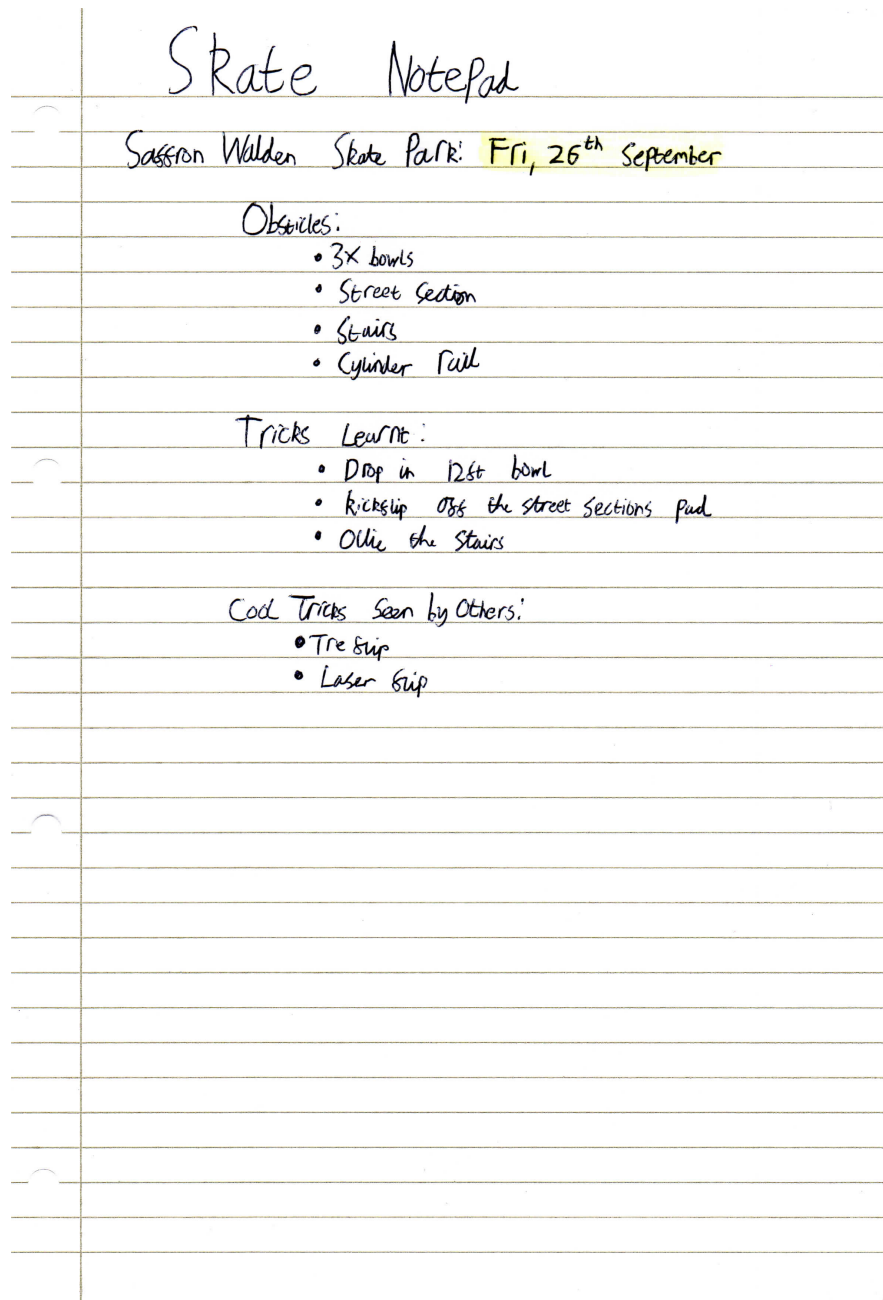 Skate Notepad
Saffron Walden Skate Park: Fri, 26th September
Obsticles:
• 3x bowls
• Street Section
• Stairs
• Cylinder rail
Tricks Learnt:
• Drop in 12ft bowl
• kickflip off the street sections pad
• Ollie the stairs
Cool Tricks Seen by Others:
• Tre flip
• Laser flip